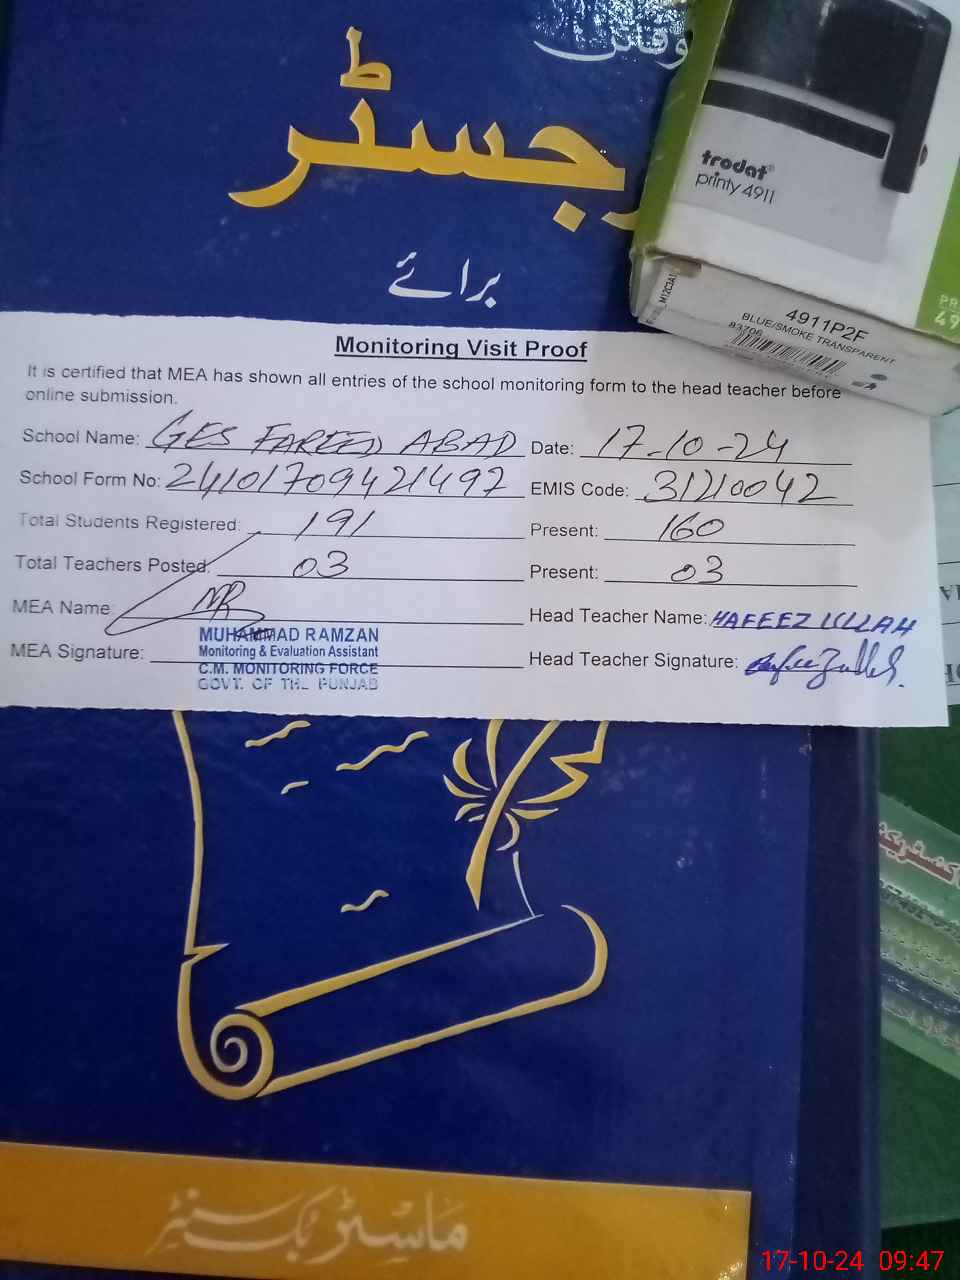 رجسٹر
برائے
trodat®
printy 4911
4911P2F
BLUE/SMOKE TRANSPARENT
83706
Monitoring Visit Proof
It is certified that MEA has shown all entries of the school monitoring form to the head teacher before
online submission.
School Name: GES FAREED ABAD Date: 17-10-24
School Form No: 24101709421497 EMIS Code: 31210042
Total Students Registered: 191 Present: 160
Total Teachers Posted: 03 Present: 03
MEA Name: MR Head Teacher Name: HAFEEZ ULLAH
MUHAMMAD RAMZAN
Monitoring & Evaluation Assistant
MEA Signature: Head Teacher Signature: Hafeezullah
C.M. MONITORING FORCE
GOVT. OF THE PUNJAB
ماسٹر بک سنٹر
17-10-24 09:47